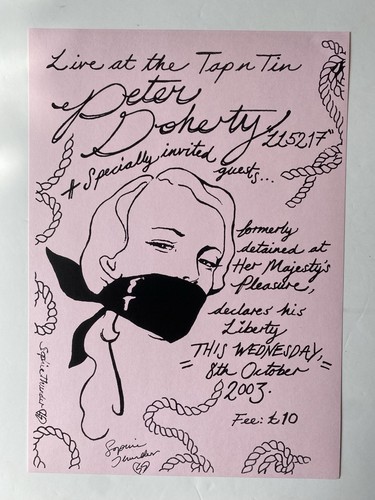 Live at the Tap n Tin
Peter
Doherty
"LL5217"
# Specially invited guests...
formerly
detained at
Her Majesty's
Pleasure,
declares his
Liberty
"THIS WEDNESDAY,"
8th October
2003.
Fee: £10
Sophie Thunder
Sophie